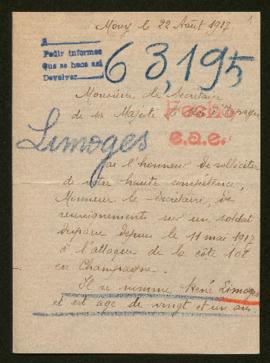 Mouy le 22 Août 1917
A
Pedir informes
que se hace así
Devolver
63,195
Monsieur le Secrétaire
de sa Majesté le Roi d'Espagne
Fecho
e.a.e.
Limoges
J'ai l'honneur de solliciter
de votre haute
Monsieur le Secrétaire, des
renseignements sur un soldat
disparu depuis le 11 mai 1917
à l'attaque de la côte 108
en Champagne.
Il se nomme René Limoges
et est age de vingt et un ans.